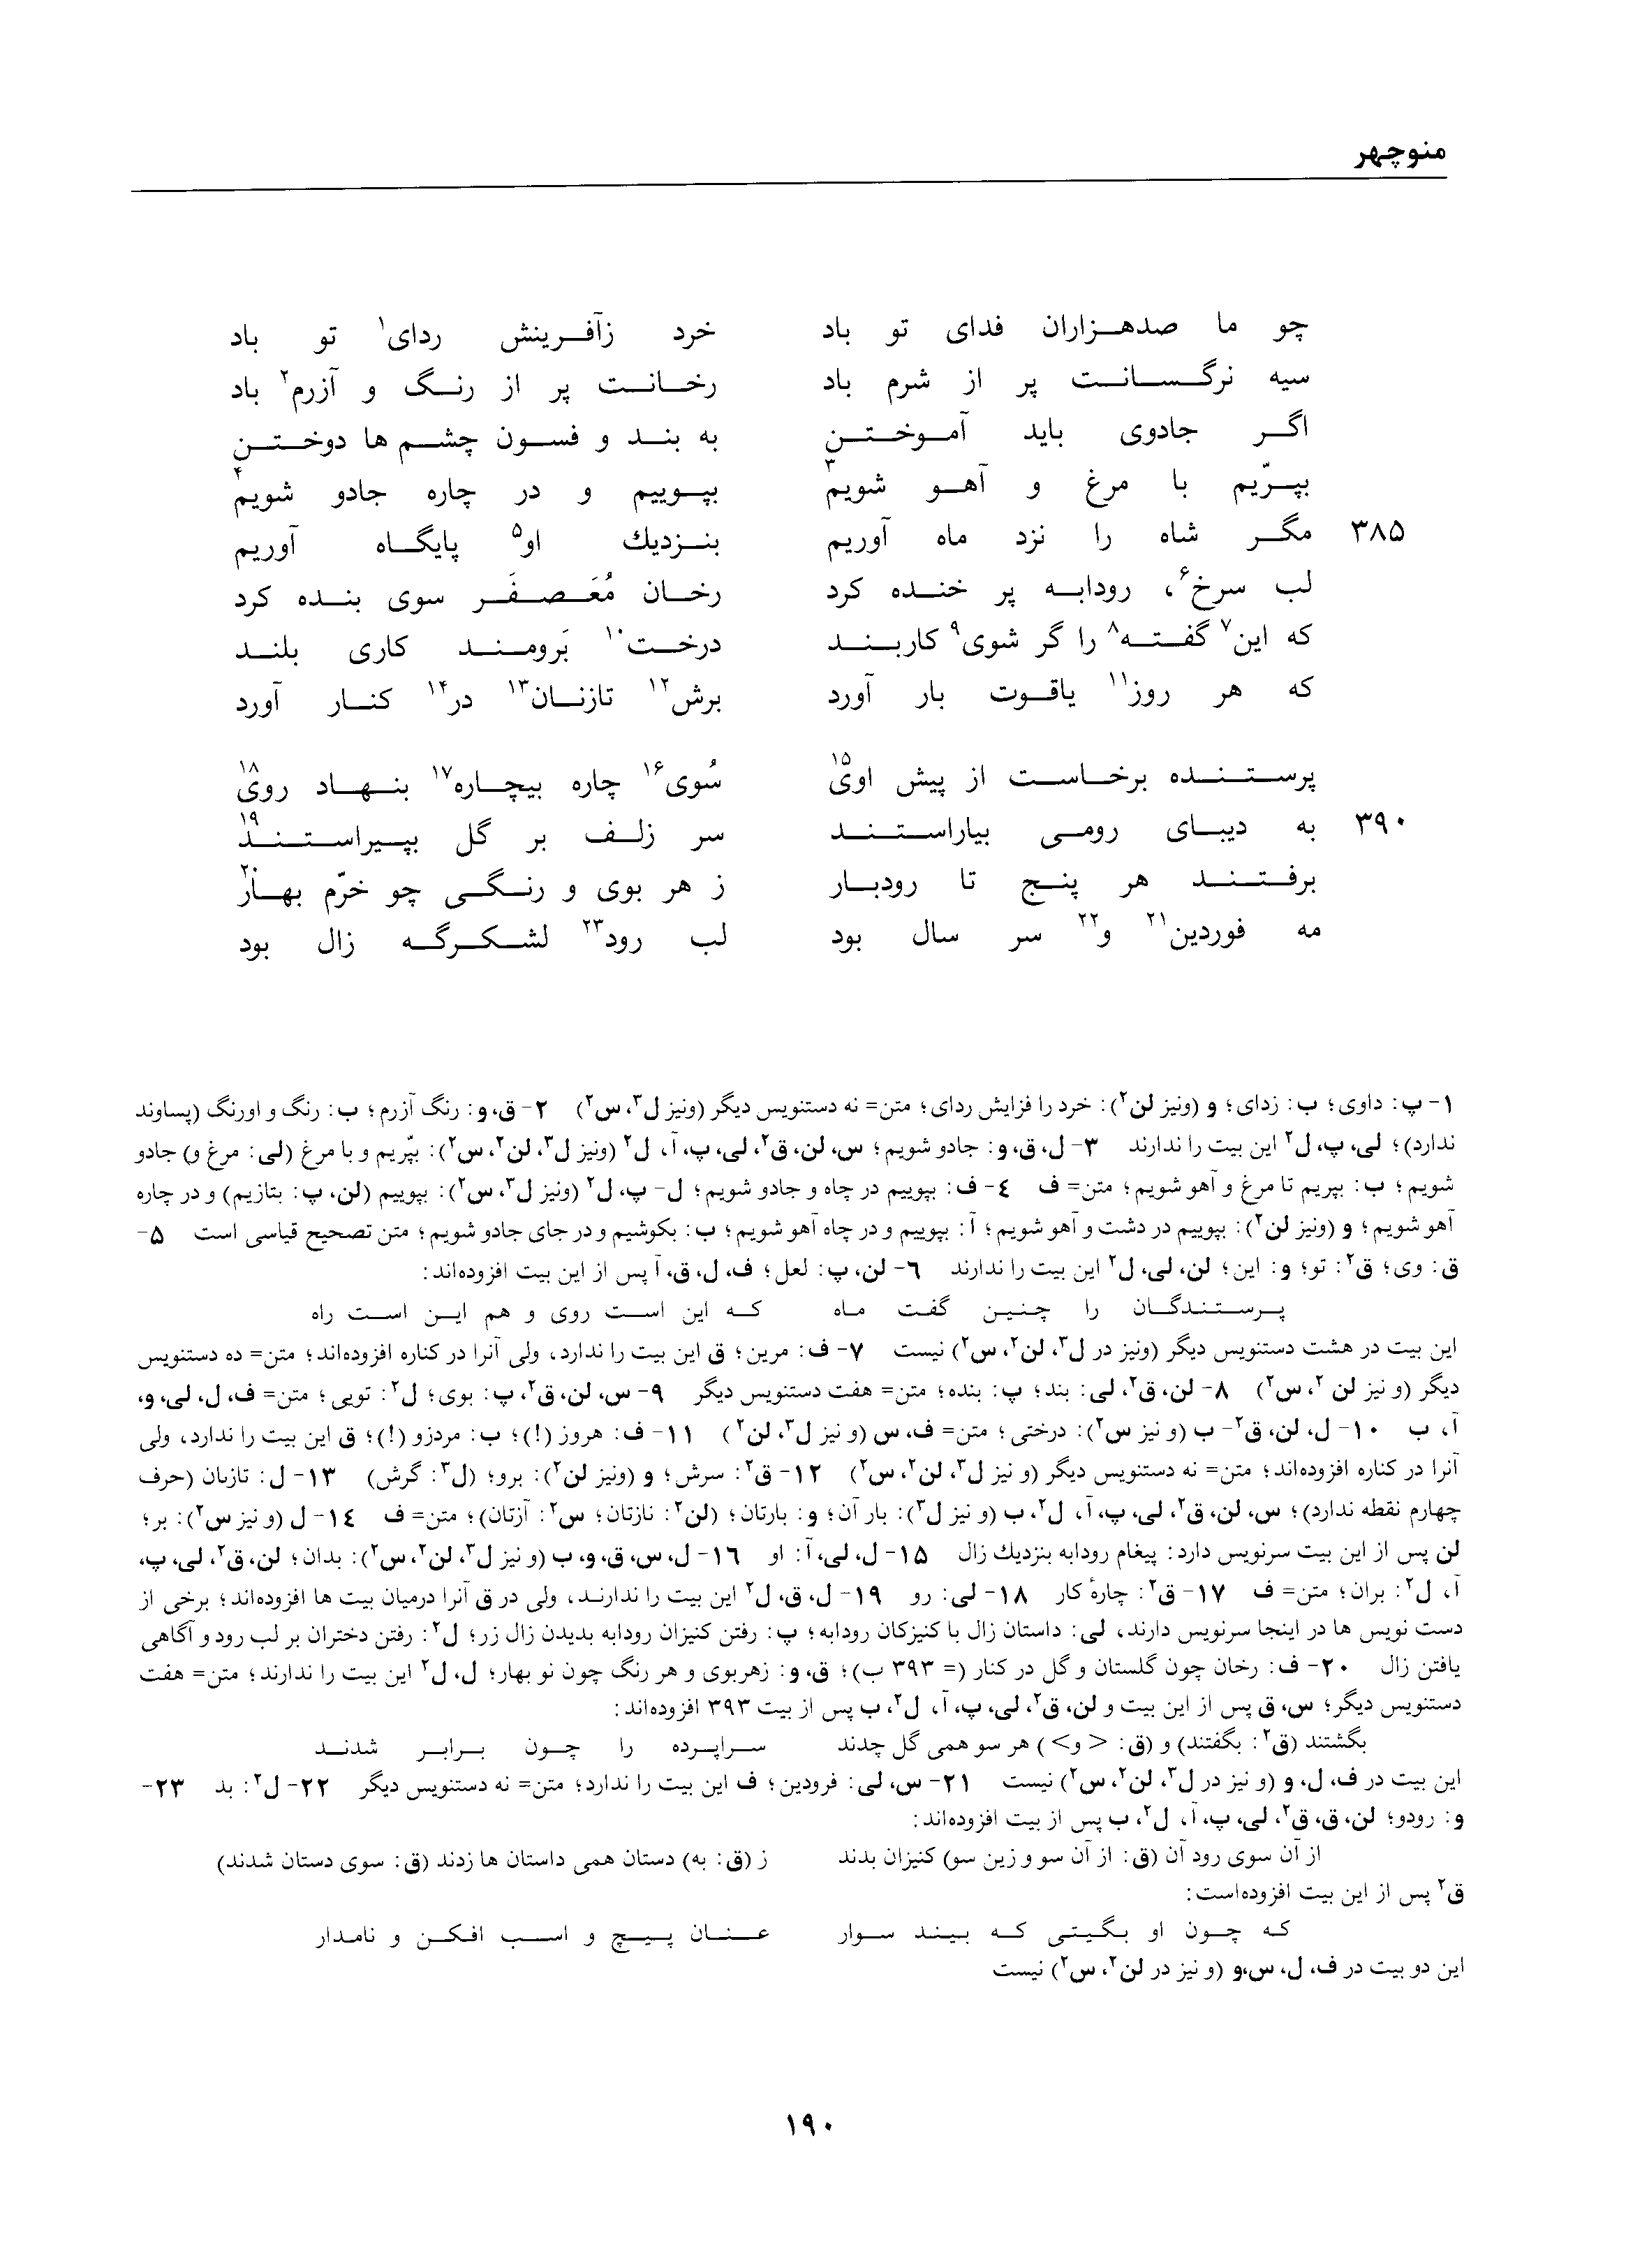 منوچهر
چو ما صدهزاران فدای تو باد خرد زآفرینش ردای۱ تو باد
سیه نرگسانت پر از شرم باد رخانت پر از رنگ و آزرم۲ باد
اگر جادوی باید آموختن به بند و فسون چشم ها دوختن
بپرّیم با مرغ و آهو شویم۳ بپوییم و در چاره جادو شویم۴
۳۸۵ مگر شاه را نزد ماه آوریم بنزدیك او۵ پایگاه آوریم
لب سرخ۶، رودابه پر خنده کرد رخان مُعَصفَر سوی بنده کرد
که این۷ گفته۸ را گر شوی۹ کاربند درخت۱۰ بَرومند کاری بلند
که هر روز۱۱ یاقوت بار آورد برش۱۲ تازنان۱۳ در۱۴ کنار آورد
پرستنده برخاست از پیش اوی۱۵ سُوی۱۶ چاره بیچاره۱۷ بنهاد روی۱۸
۳۹۰ به دیبای رومی بیاراستند سر زلف بر گل بپیراستند۱۹
برفتند هر پنج تا رودبار ز هر بوی و رنگی چو خرّم بهار۲۰
مه فوردین۲۱ و۲۲ سر سال بود لب رود۲۳ لشکرگه زال بود
۱- پ: داوی؛ ب: زدای؛ و (ونیز لن۲): خرد را فزایش ردای؛ متن= نه دستنویس دیگر (ونیز ل۳، س۲) ۲- ق، و: رنگ آزرم؛ ب: رنگ و اورنگ (پساوند
ندارد)؛ لی، پ، ل۲ این بیت را ندارند ۳- ل، ق، و: جادو شویم؛ س، لن، ق۲، لی، پ، آ، ل۲ (ونیز ل۳، لن۲، س۲): بپّریم و با مرغ (لی: مرغ و) جادو
شویم؛ ب: بپریم تا مرغ و آهو شویم؛ متن= ف ٤- ف: بپوییم در چاه و جادو شویم؛ ل- پ، ل۲ (ونیز ل۳، س۲): بپوییم (لن، پ: بتازیم) و در چاره
آهو شویم؛ و (ونیز لن۲): بپوییم در دشت و آهو شویم؛ آ: بپوییم و در چاه آهو شویم؛ ب: بکوشیم و در جای جادو شویم؛ متن تصحیح قیاسی است ۵-
ق: وی؛ ق۲: تو؛ و: این؛ لن، لی، ل۲ این بیت را ندارند ٦- لن، پ: لعل؛ ف، ل، ق، آ پس از این بیت افزوده‌اند:
پرستندگان را چنین گفت ماه که این است روی و هم این است راه
این بیت در هشت دستنویس دیگر (ونیز در ل۳، لن۲، س۲) نیست ۷- ف: مرین؛ ق این بیت را ندارد، ولی آنرا در کناره افزوده‌اند؛ متن= ده دستنویس
دیگر (و نیز لن ۲، س۲) ۸- لن، ق۲، لی: بند؛ پ: بنده؛ متن= هفت دستنویس دیگر ۹- س، لن، ق۲، پ: بوی؛ ل۲: تویی؛ متن= ف، ل، لی، و،
آ، ب ۱۰- ل، لن، ق۲- ب (و نیز س۲): درختی؛ متن= ف، س (و نیز ل۳، لن۲) ۱۱- ف: هروز (!)؛ ب: مردزو (!)؛ ق این بیت را ندارد، ولی
آنرا در کناره افزوده‌اند؛ متن= نه دستنویس دیگر (و نیز ل۳، لن۲، س۲) ۱۲- ق۲: سرش؛ و (ونیز لن۲): برو؛ (ل۳: گرش) ۱۳- ل: تازنان (حرف
چهارم نقطه ندارد)؛ س، لن، ق۲، لی، پ، آ، ل۲، ب (و نیز ل۳): بار آن؛ و: بارتان؛ (لن۲: نازتان؛ س۲: آزتان)؛ متن= ف ۱٤- ل (و نیز س۲): بر؛
لن پس از این بیت سرنویس دارد: پیغام رودابه بنزدیك زال ۱۵- ل، لی، آ: او ۱٦- ل، س، ق، و، ب (و نیز ل۳، لن۲، س۲): بدان؛ لن، ق۲، لی، پ،
آ، ل۲: بران؛ متن= ف ۱۷- ق۲: چارهٔ کار ۱۸- لی: رو ۱۹- ل، ق، ل۲ این بیت را ندارند، ولی در ق آنرا درمیان بیت ها افزوده‌اند؛ برخی از
دست نویس ها در اینجا سرنویس دارند، لی: داستان زال با کنیزکان رودابه؛ پ: رفتن کنیزان رودابه بدیدن زال زر؛ ل۲: رفتن دختران بر لب رود و آگاهی
یافتن زال ۲۰- ف: رخان چون گلستان و گل در کنار (= ۳۹۳ ب)؛ ق، و: زهربوی و هر رنگ چون نو بهار؛ ل، ل۲ این بیت را ندارند؛ متن= هفت
دستنویس دیگر؛ س، ق پس از این بیت و لن، ق۲، لی، پ، آ، ل۲، ب پس از بیت ۳۹۳ افزوده‌اند:
بگشتند (ق۲: بگفتند) و (ق: <و>) هر سو همی گل چدند سراپرده را چون برابر شدند
این بیت در ف، ل، و (و نیز در ل۳، لن۲، س۲) نیست ۲۱- س، لی: فرودین؛ ف این بیت را ندارد؛ متن= نه دستنویس دیگر ۲۲- ل۲: بد ۲۳-
و: رودو؛ لن، ق، ق۲، لی، پ، آ، ل۲، ب پس از بیت افزوده‌اند:
از آن سوی رود آن (ق: از آن سو و زین سو) کنیزان بدند ز (ق: به) دستان همی داستان ها زدند (ق: سوی دستان شدند)
ق۲ پس از این بیت افزوده‌است:
که چون او بگیتی که بیند سوار عنان پیچ و اسب افکن و نامدار
این دو بیت در ف، ل، س،و (و نیز در لن۲، س۲) نیست
۱۹۰